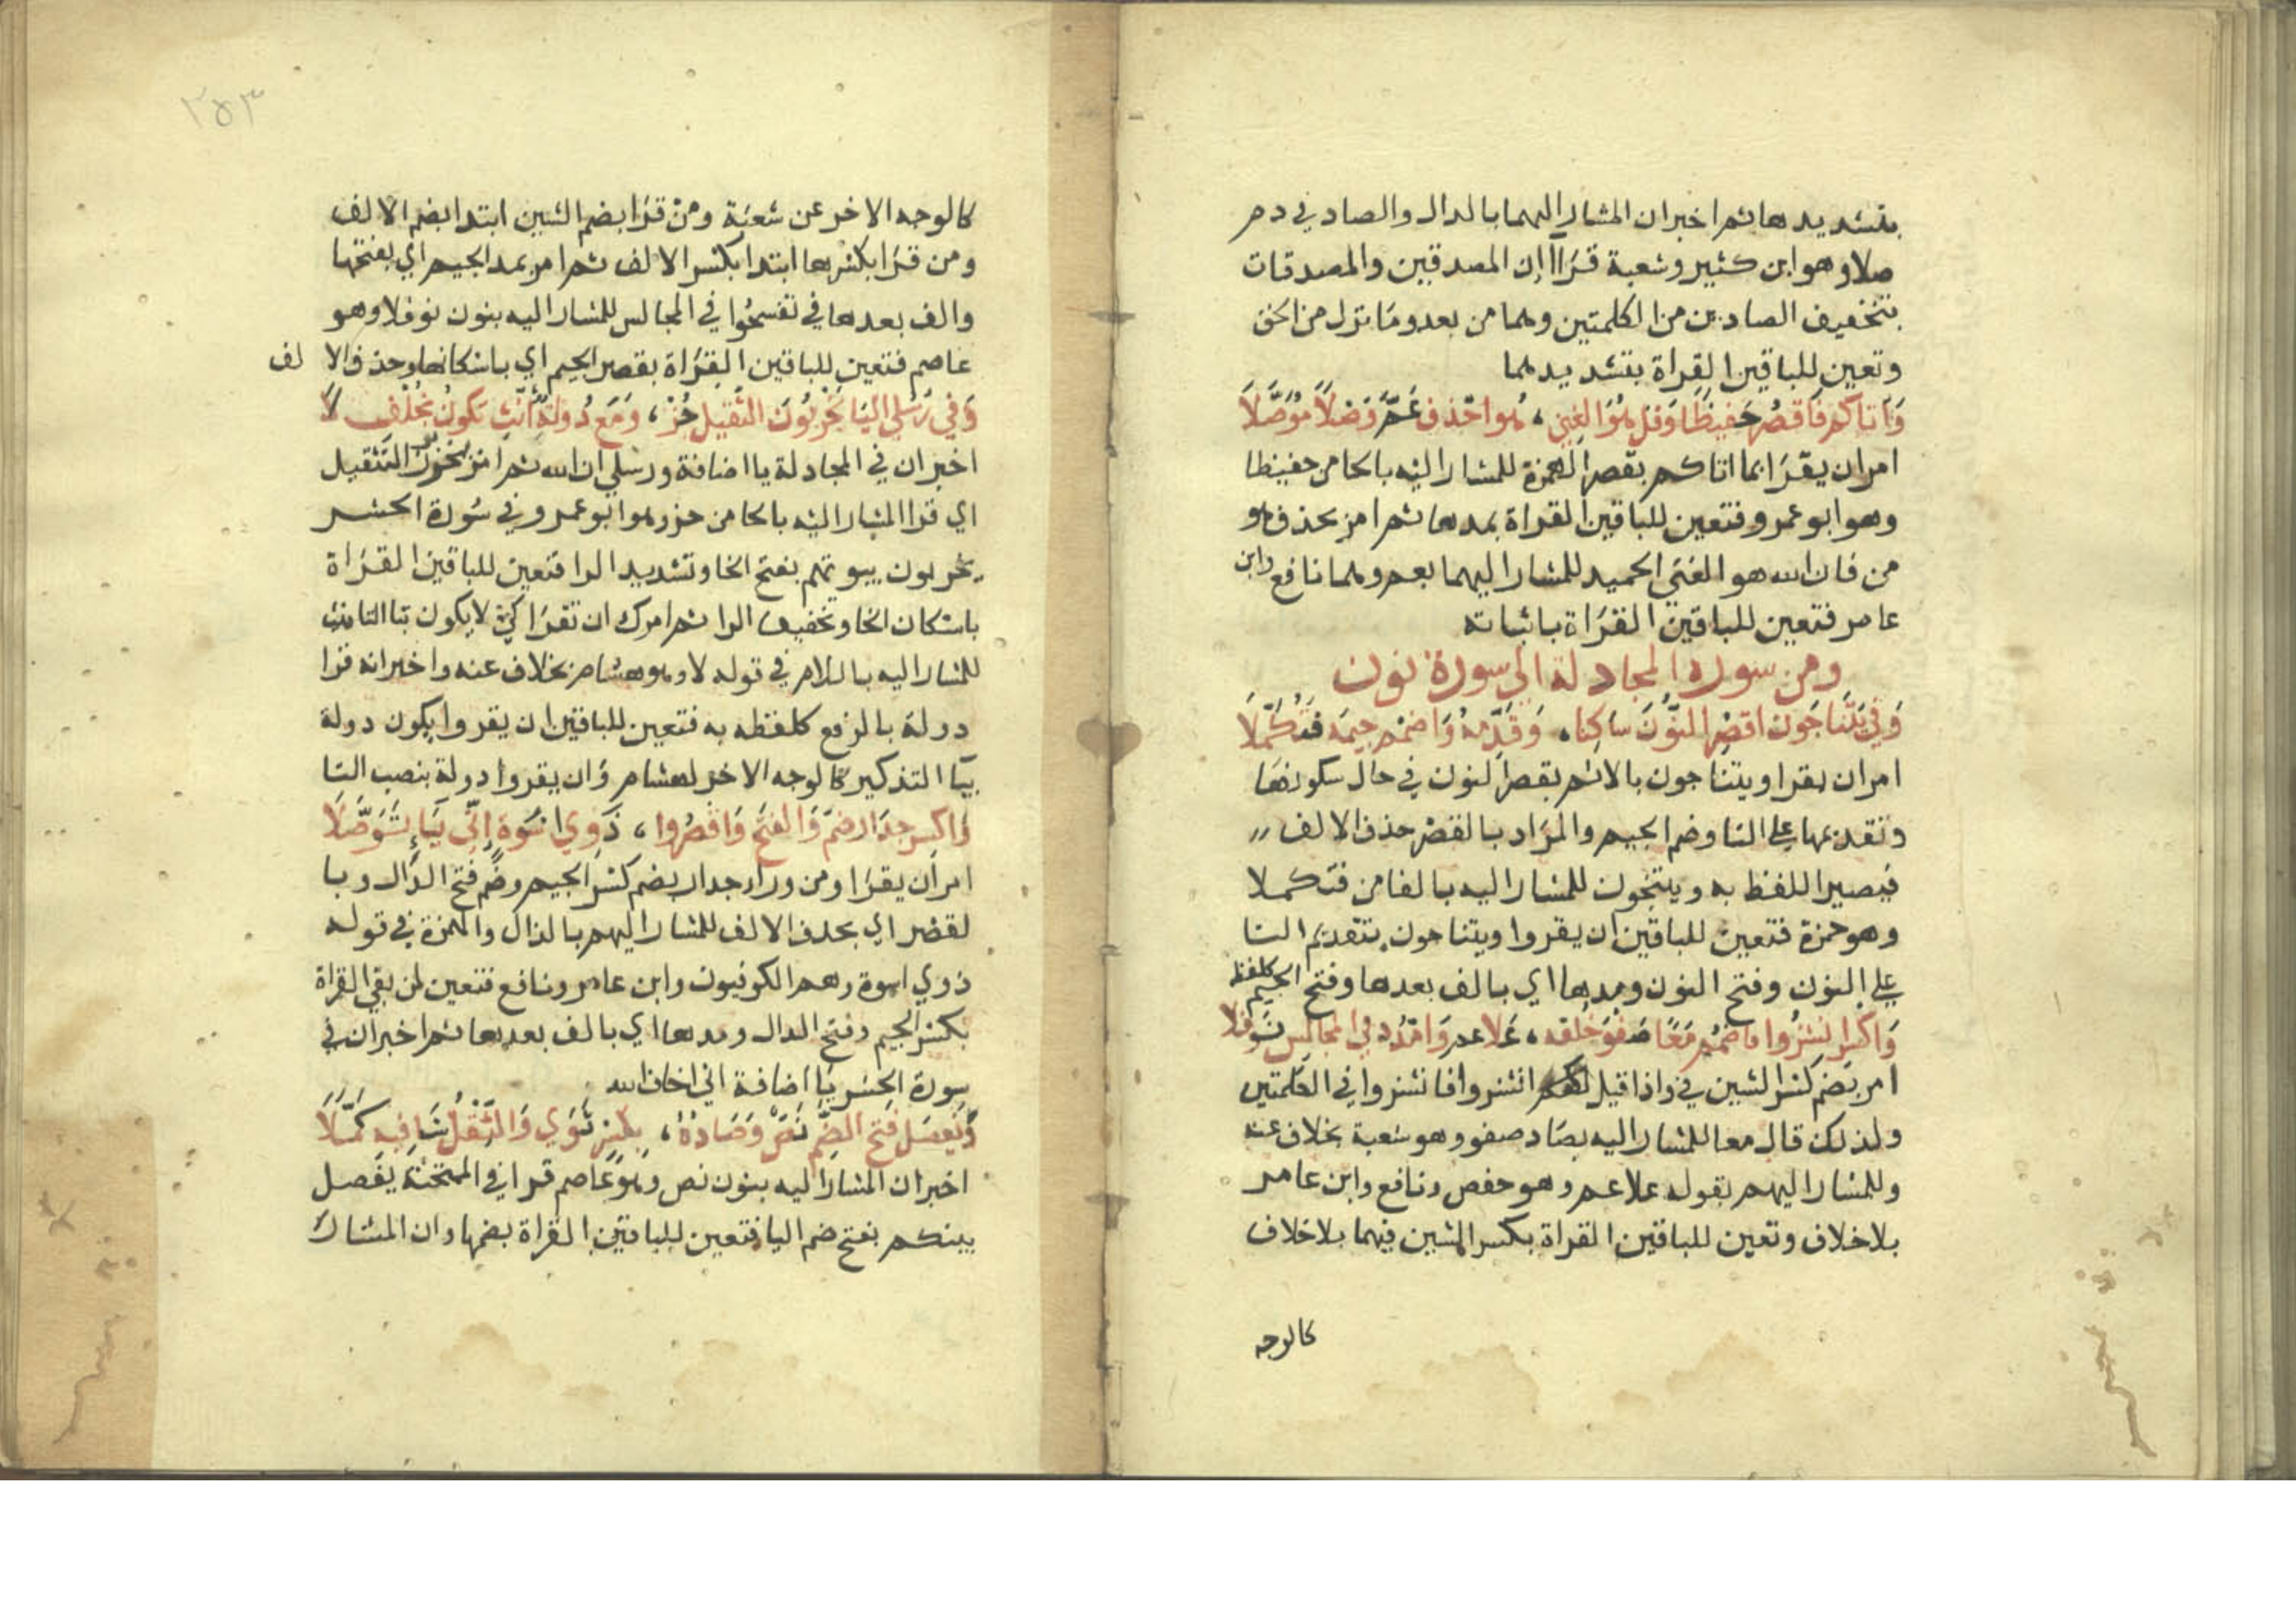 بتشديدها ثم اخبر ان المشار اليهما بالدال والصاد في دم
صلا وهو ابن كثير وشعبة قرأا إن المصدقين والمصدقات
بتخفيف الصادين من الكلمتين وهما من بعد وما نزل من الحق
وتعين للباقين القراة بتشديدهما
وَآتاكم فَاقصُر حَفيظًا وَقل هُوَ الغني، هو احذف عَمَّ وَصْلاً مُوَصَّلَا
امر ان يقرَا بما اتاكم بقصر الهمزة للمشار اليه بالحا من حفيظا
وهو ابو عمرو فتعين للباقين القراة بمدها ثم امر بحذف هو
من فان الله هو الغني الحميد للمشار اليهما بعم وهما نافع وابن
عامر فتعين للباقين القرَاة باثباته
ومن سورة المجادلة الي سورة نون
وَفي يَتَنَاجَون اقصُر النُّونَ سَاكِنا، وَقَدِّمهُ وَاضمُم جيمَه فَتُكَمِّلَا
امر ان يقرا ويتناجون بالاثم بقصر النون في حال سكونهَا
وتقديمها علي التا وضم الجيم والمرَاد بالقصْر حذف الالف
فيصير اللفظ به وينتجون للمشار اليه بالفا من فتكملا
وهو حمزة فتعين للباقين ان يقروا ويتناجون بتقديم التا
علي النون وفتح النون ومدها اي بالف بعدها وفتح الجيم كلفظه
وَاكسِر انشزُوا فاضمُم مَعًا صَفوَ خلفه، عَلا عم وَامْدُد في المجالِس نَوفَلا
امر بضم كسْر الشين في واذا قيل لكم انشزوا فانشزوا في الكلمتين
ولذلك قال معا للمشار اليه بصَاد صفو وهو شعبة بخلاف عنه
وللمشار اليهم بقوله علا عم وهو حفص ونافع وابن عامر
بلاخلاف وتعين للباقين القراة بكسر الشين فيهما بلاخلاف
كالوجه
٢٥٣
كالوجه الاخر عن شعبَة ومنْ قرَا بضم الشين ابتدا بضم الالف
ومن قرَا بكسْرها ابتدا بكسر الالف ثم امر بمد الجيم اي بفتحها
والف بعدها في تفسحُوا في المجالس للمشار اليه بنون نوفلا وهو
عاصم فتعين للباقين القرَاة بقصر الجيم اي باسكانها وحذف الالف
وَفي رُسُلي اليَا يُخْرِبُونَ الثقيل حُزْ، وَمَع دُولةٌ أنِّث يَكونُ بِخُلْفِ لَا
اخبر ان في المجادلة يا اضافة ورسلي ان الله ثم امر بحوز التثقيل
اي قرا المشار اليه بالحا من حز وهو ابو عمرو في سُورة الحشر
يخربون بيوتهم بفتح الخا وتشديد الرا فتعين للباقين القرَاة
باسْكان الخا وتخفيف الرا ثم امرك ان تقرَا كي لا يكون بتا التانيث
للمشار اليه باللام في قوله لا وهو هشام بخلاف عنه واخبر انه قرا
دولة بالرفع كلفظه به فتعين للباقين ان يقروا يكون دولة
بيَا التذكير كالوجه الاخر لهشام وَان يقروا دولة بنصب التا
وَاكسر جدَار ضمّ وَالفتح وَاقصُروا، ذَوِي اسْوَةٍ إنّي بيَاءٍ تَوَصَّلَا
امر ان يقرَا ومن وراء جدار بضم كسْر الجيم وضم فتح الدَّال وبا
لقصْر اي بحذف الالف للمشار اليهم بالذال والهمزة في قوله
ذوي اسوة وهم الكوفيون وابن عامر ونافع فتعين لمن بقي القراة
بكسْر الجيم وفتح الدال ومدها اي بالف بعدها ثم اخبر ان في
سورة الحشر يَا اضافة اني اخاف الله
وَيُفصَل فتح الضم نَصٌّ وَصَادُهُ، بكسْرٍ ثَوَى وَالثِّقْلُ شَافِيهِ كَمَّلَا
اخبر ان المشار اليه بنون نص وهو عَاصم قرا في الممتحنة يفصل
بينكم بفتح ضم اليا فتعين للباقين القراة بضمها وان المشار